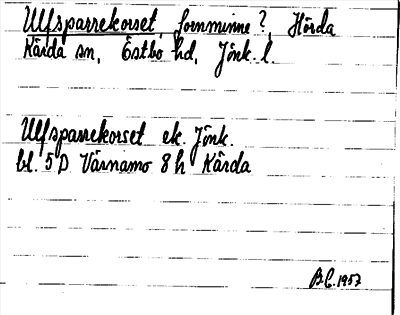 Ulfsparrekorset, fornminne?, Hörda
Kärda sn, Östbo hd, Jönk. l.
Ulfsparrekorset ek. Jönk.
bl. 5 D Värnamo 8 h Kärda
B.C. 1957